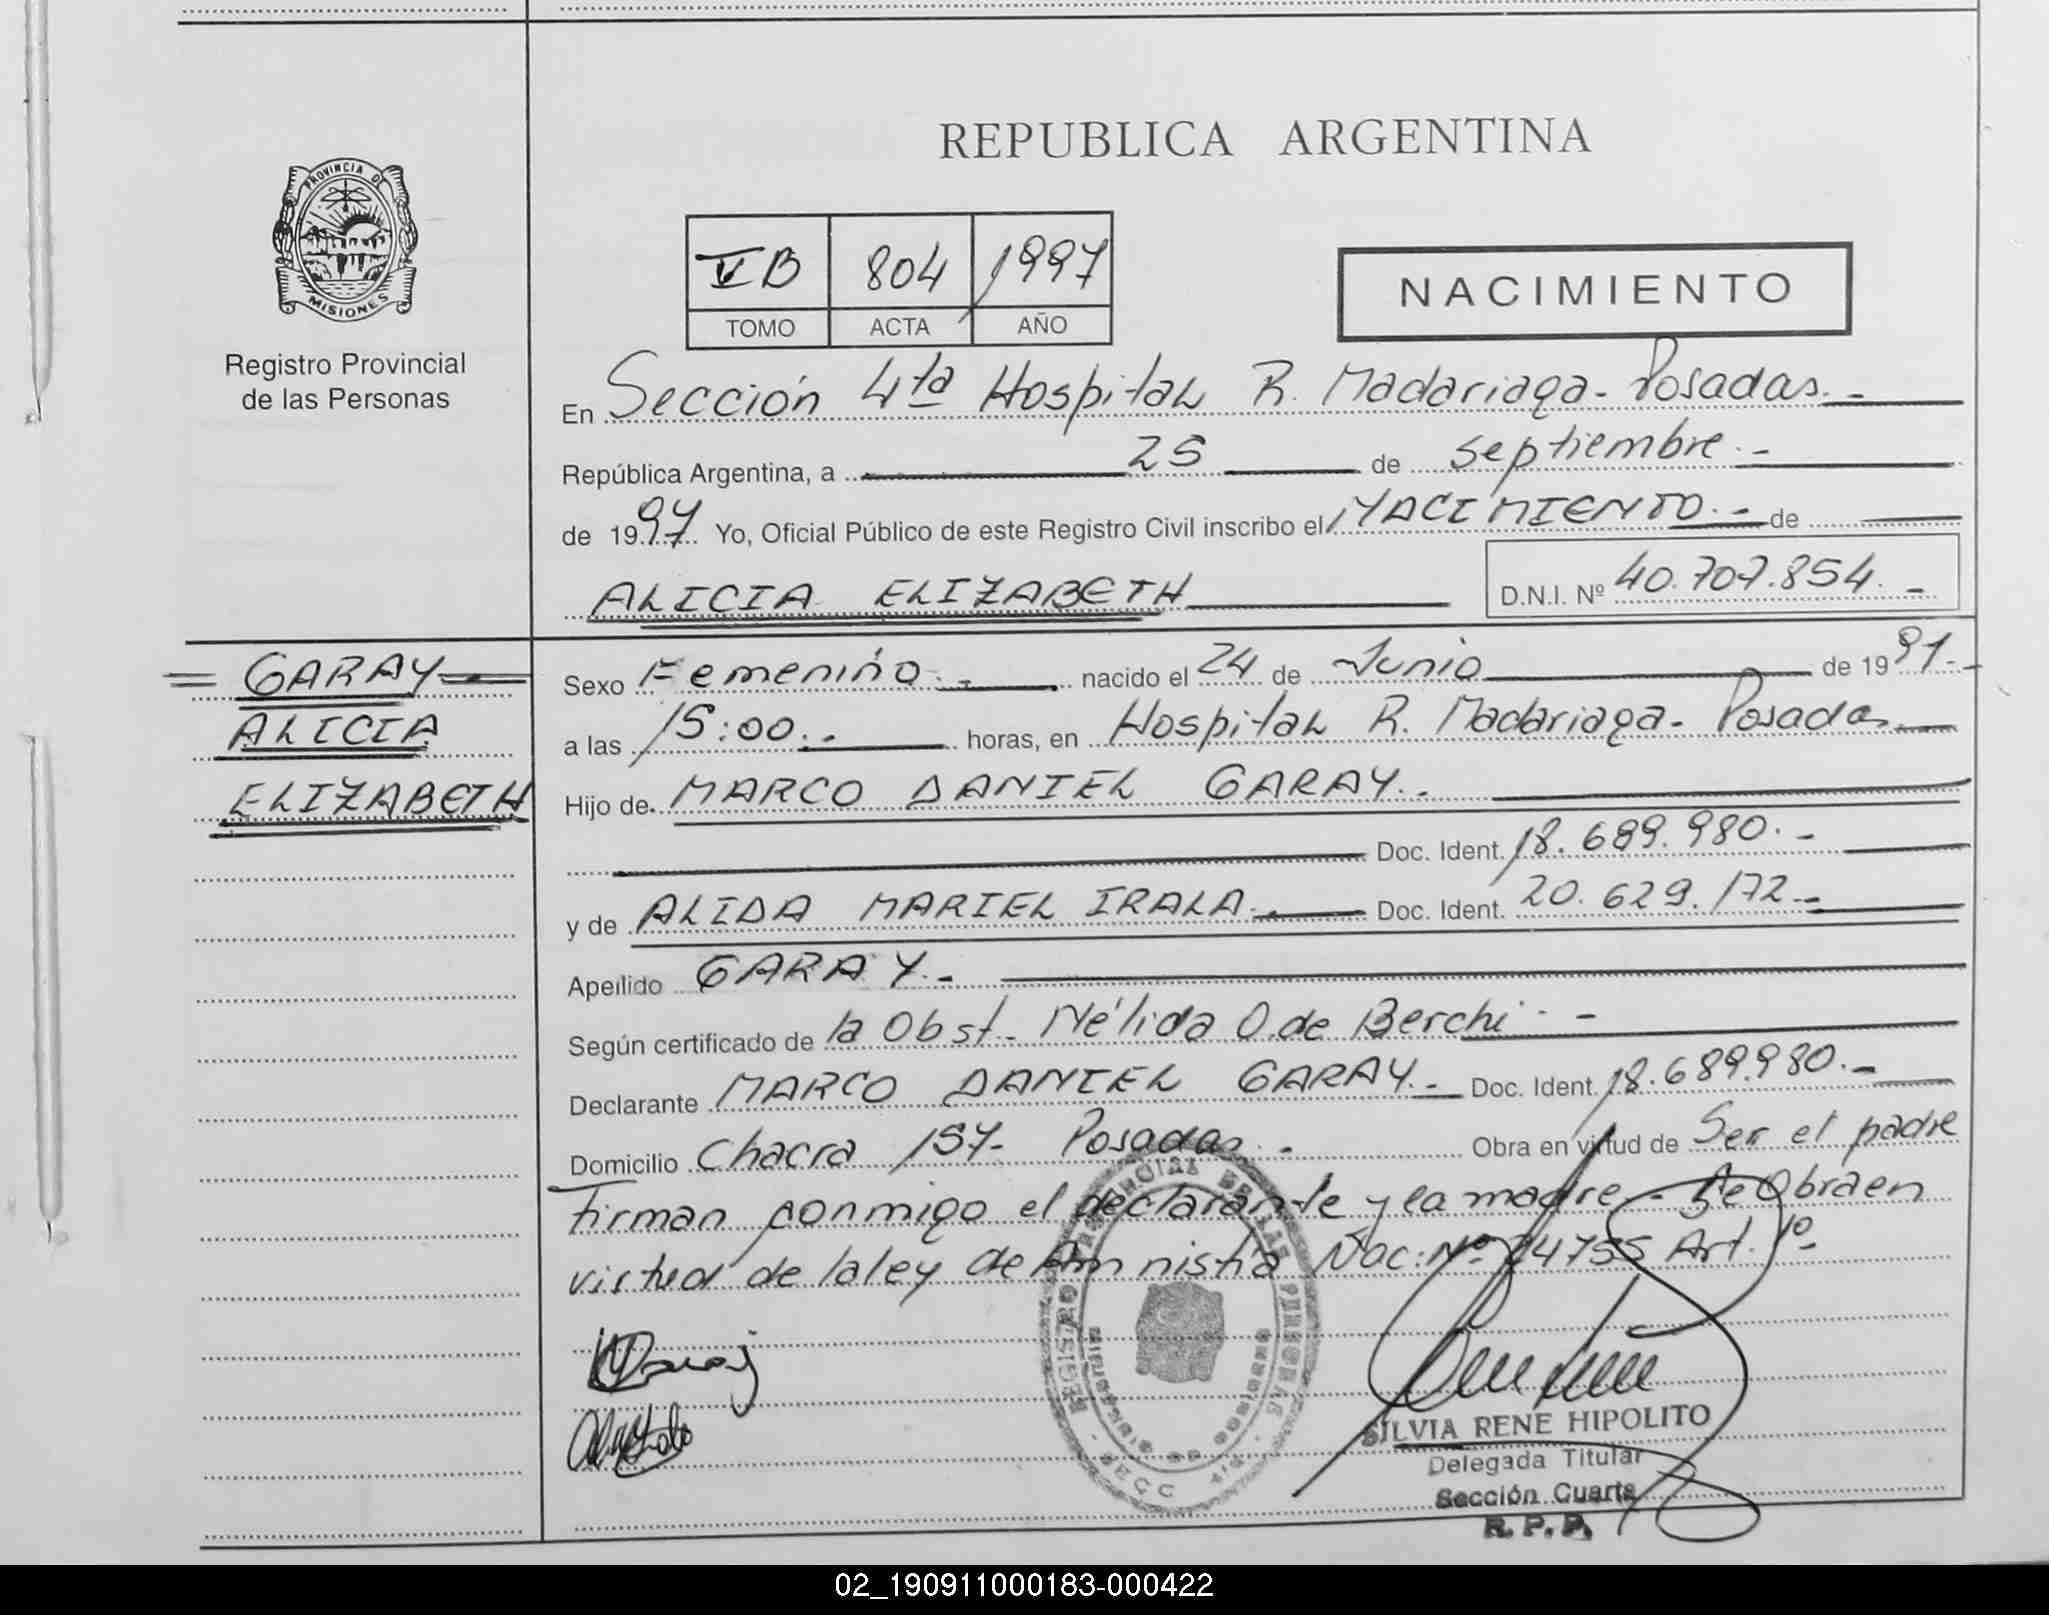 REPUBLICA ARGENTINA
PROVINCIA DE
MISIONES
Registro Provincial
de las Personas
VB 804 1997
TOMO ACTA AÑO
NACIMIENTO
En Sección 4ta Hospital R. Madariaga - Posadas.-
República Argentina, a 25 de septiembre.-
de 1997 Yo, Oficial Público de este Registro Civil inscribo el NACIMIENTO.- de
ALICIA ELIZABETH
D.N.I. Nº 40.707.854.-
GARAY
ALICIA
ELIZABETH
Sexo Femenino.- nacido el 24 de Junio de 1997.-
a las 15:00.- horas, en Hospital R. Madariaga - Posadas
Hijo de MARCO DANIEL GARAY.-
Doc. Ident. 18.689.980.-
y de ALIDA MARIEL IRALA.- Doc. Ident. 20.629.172.-
Apellido GARAY.-
Según certificado de la Obst. Nélida O. de Berchi.-
Declarante MARCO DANIEL GARAY.- Doc. Ident. 18.689.980.-
Domicilio Chacra 157- Posadas.- Obra en virtud de Ser el padre
Firman conmigo el declarante y la madre - Se Obra en
virtud de la ley de Amnistía Nac: Nº 24755 Art. 1º-
REGISTRO PROVINCIAL DE LAS PERSONAS
SECC 4ta
SILVIA RENE HIPOLITO
Delegada Titular
Sección Cuarta
R. P. P.
02_190911000183-000422